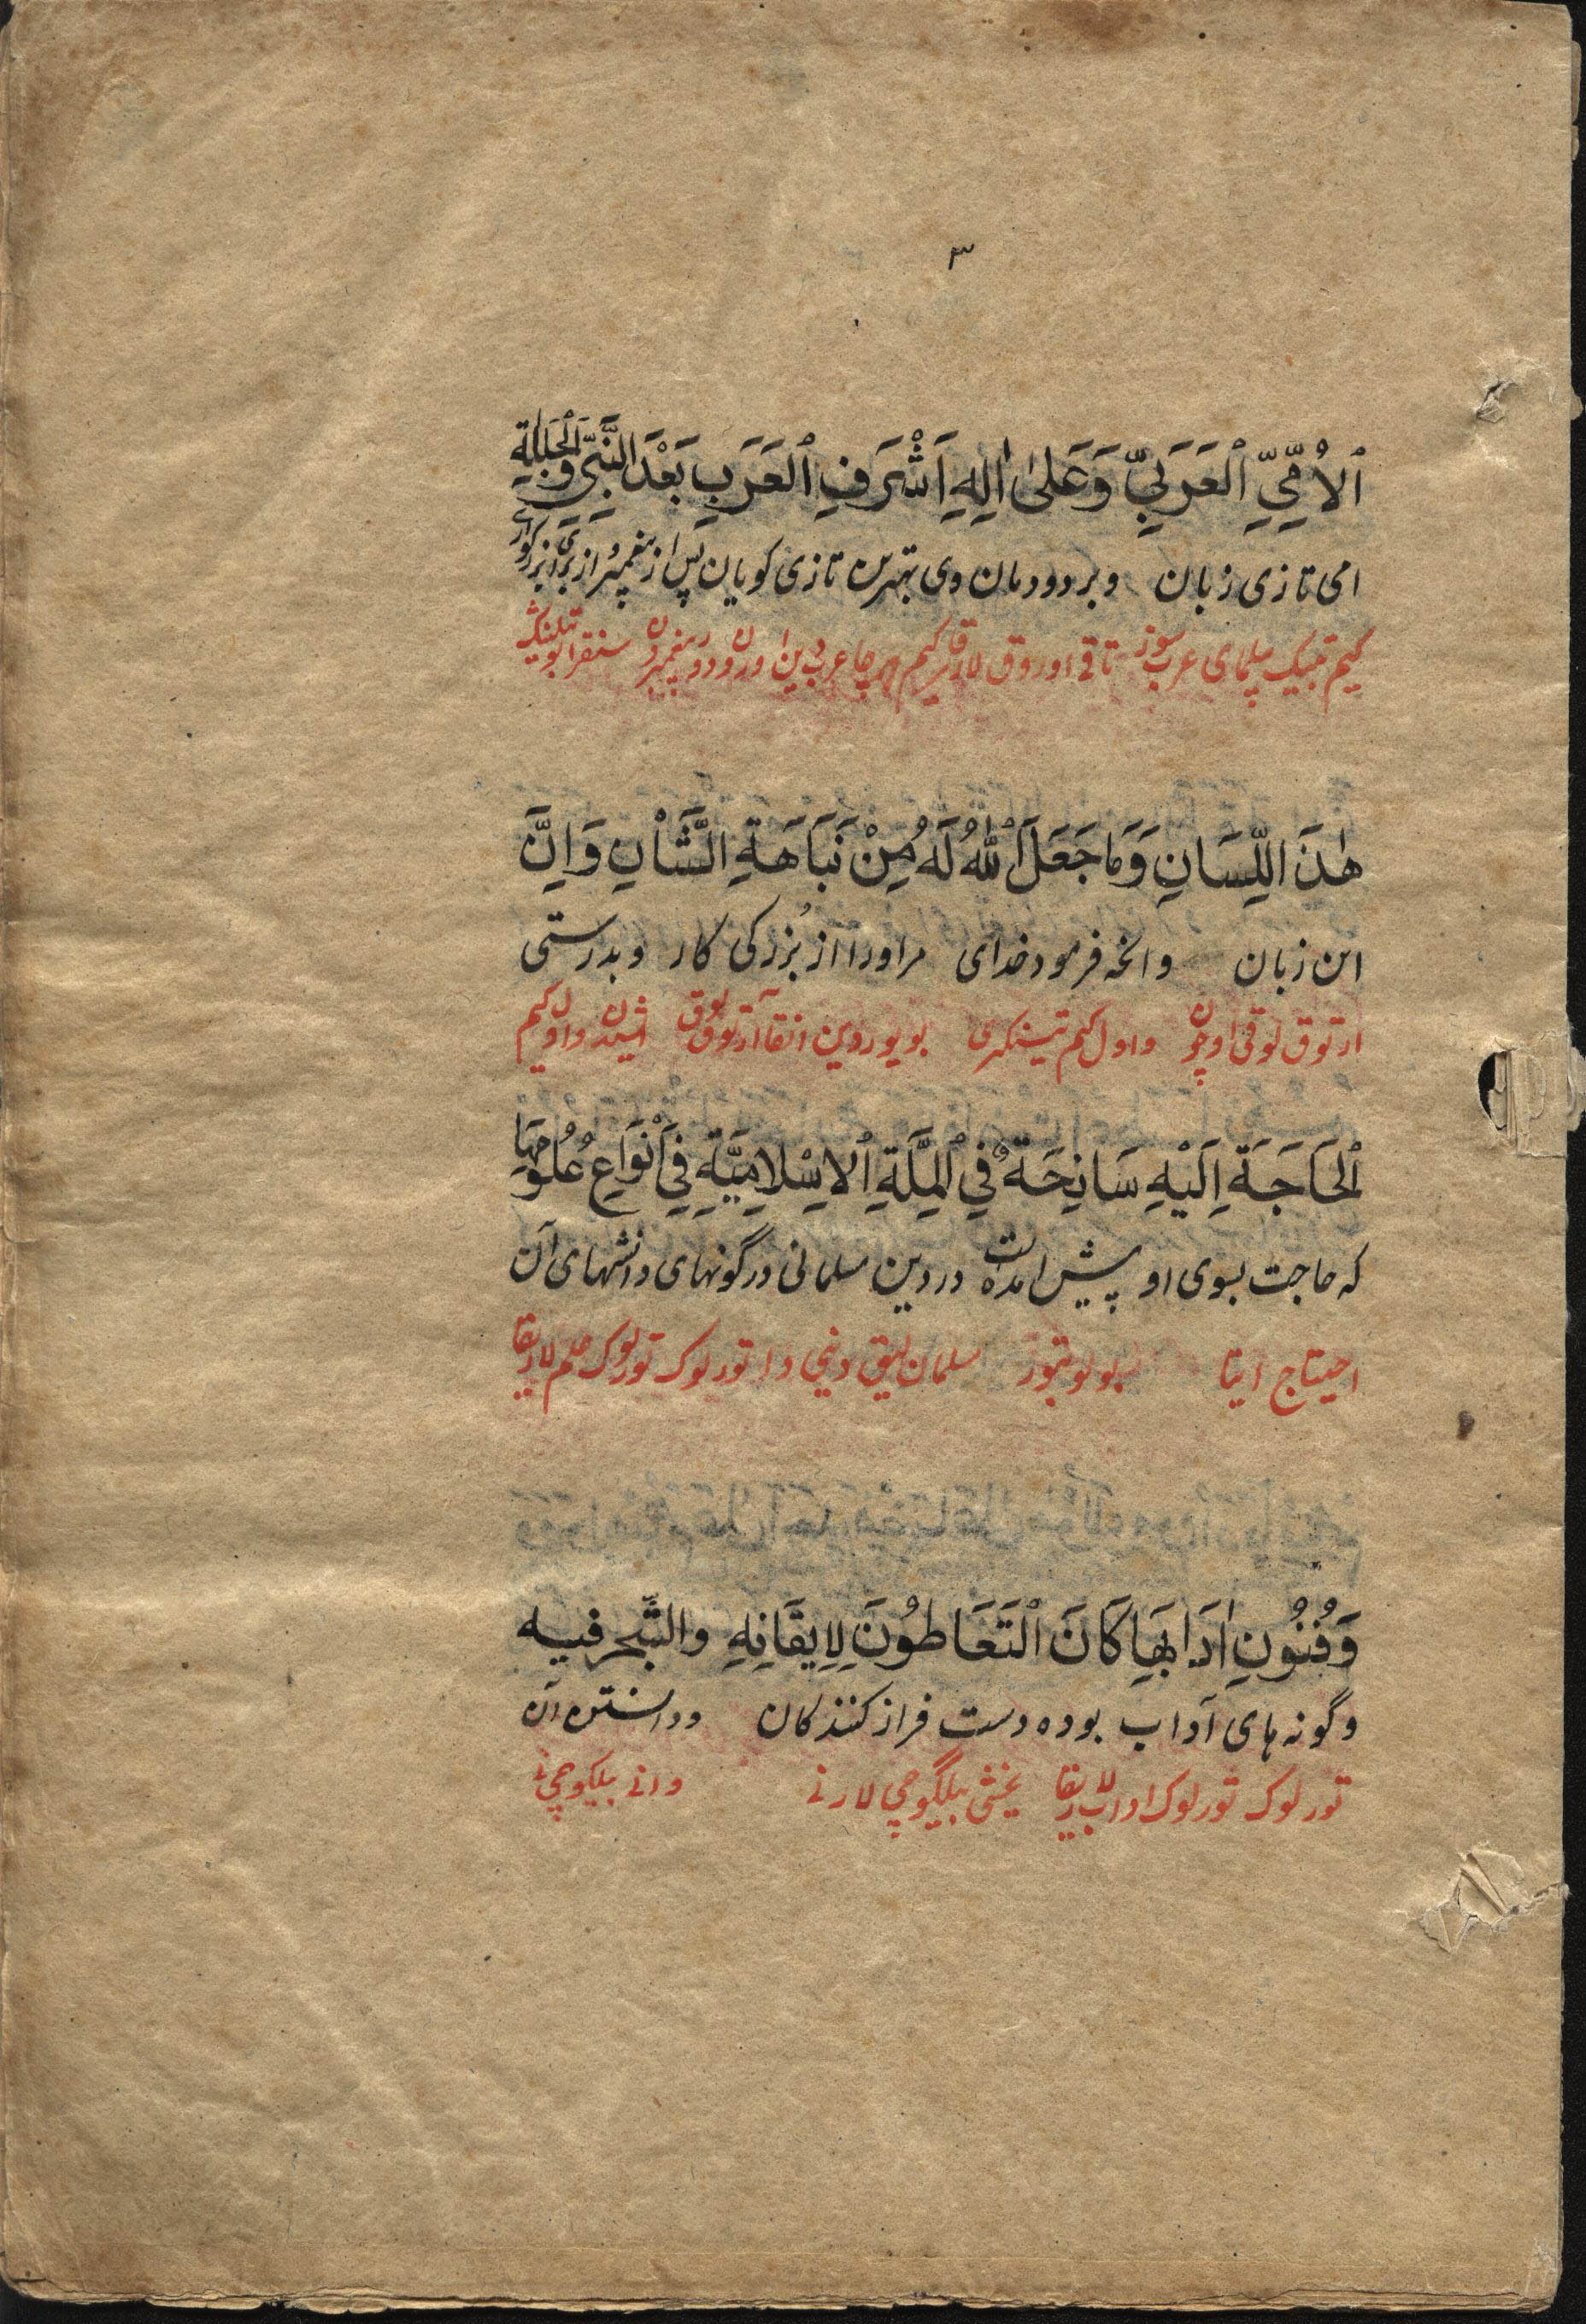 ٣
اَلْاُمِّيِّ الْعَرَبِيِّ وَعَلىٰ اٰلِهِ اَشْرَفِ الْعَرَبِ بَعْدَ النَّبِيِّ وَلِجَلَالَةِ
امی تازی زبان وبر دودمان وی بهترین تازی کویان پس از پیغمبر واز برای بزرکواری
کیم تیک بیلمای عرب سوز تاقی اوروق لارقا کیم
هٰذَا اللِّسَانِ وَمَا جَعَلَ اللهُ لَهُ مِنْ نَبَاهَةِ الشَّأْنِ وَاِنَّ
این زبان وانچه فرمود خدای مر اورا از بُزرکی کار وبدرستی
ارتوق لوقی اوچون واول کیم تینکری بویوروبن انقا ارتوقلوق ایشیندن واول کیم
اَلْحَاجَةَ اِلَيْهِ سَانِحَةٌ فِي الْمِلَّةِ الْاِسْلَامِيَّةِ فِي اَنْوَاعِ عُلُومِهَا
که حاجت بسوی او پیش امده است در دین مسلمانی در گونهای دانشهای آن
احیتاج ایتا بولوبتور مسلمان لیق دینی دا تورلوک تورلوک علم لاریقا
وَفُنُونِ اٰدَابِهَا كَانَ الْمُتَعَاطُونَ لِاِيقَانِهِ والتبحر فيه
وگونه های آداب بوده دست فراز کنندکان ودانستن آن
تورلوک تورلوک اداب لاریقا یخشی بیلگوچی لارنی وانی بیلیکوچی نی